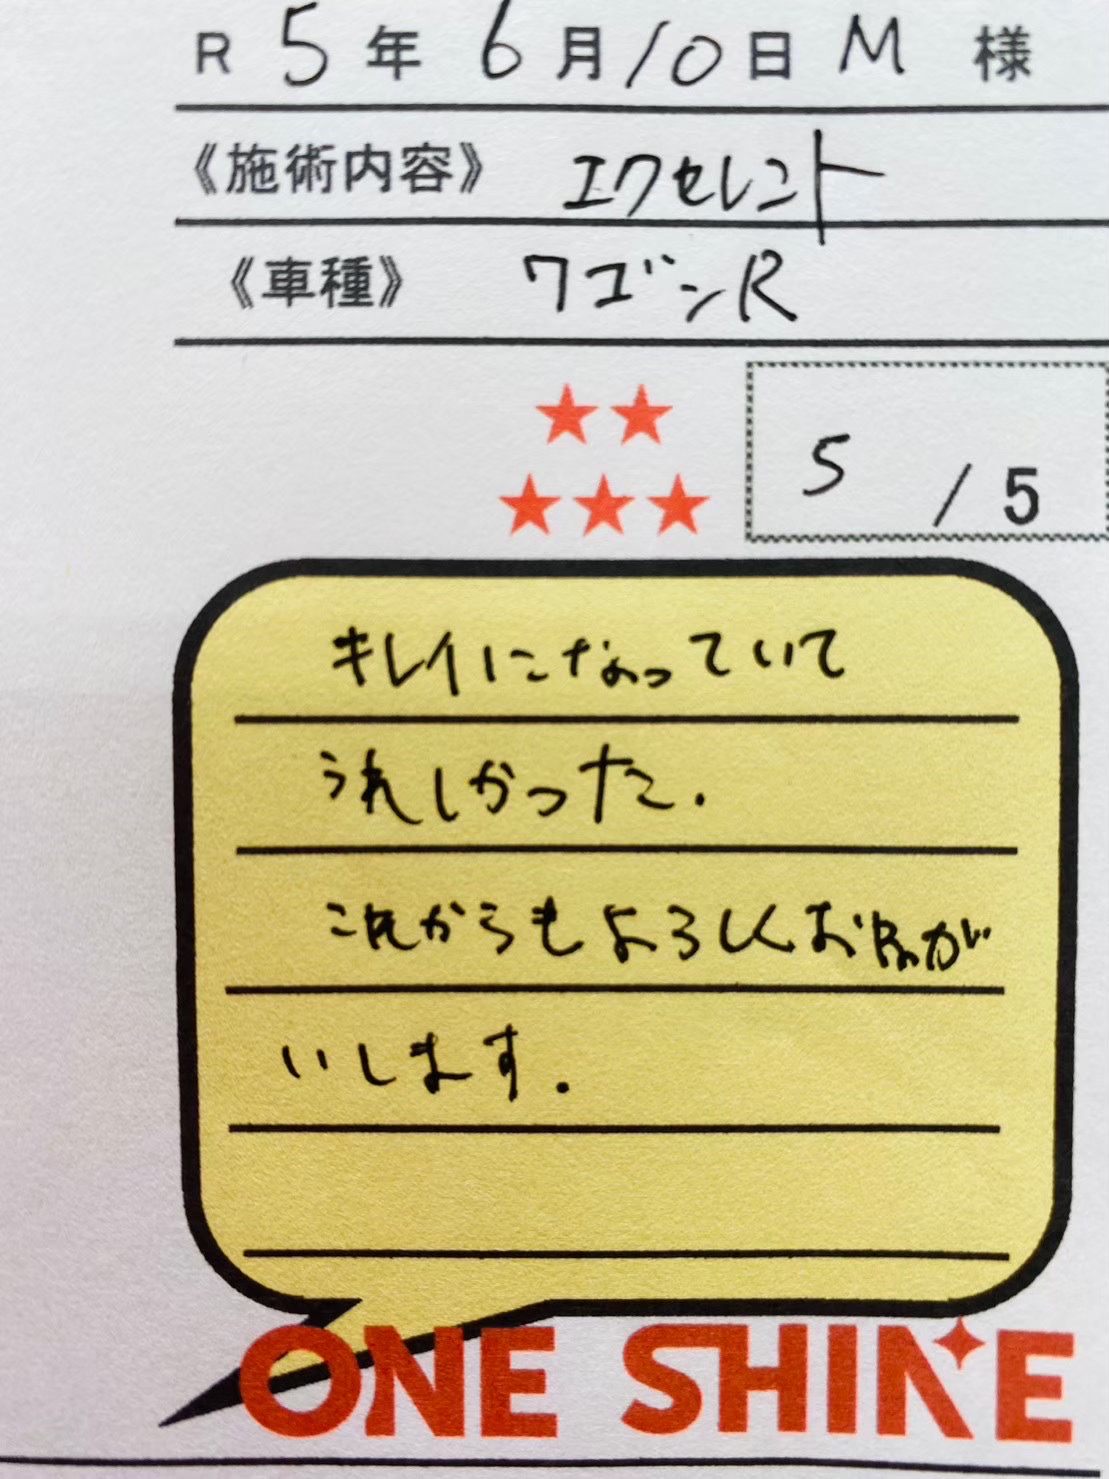 R 5年 6月10日 M 様
《施術内容》 エクセレント
《車種》 ワゴンR
★★
★★★
5 / 5
キレイになっていて
うれしかった.
これからもよろしくおねが
いします.
ONE SHINE